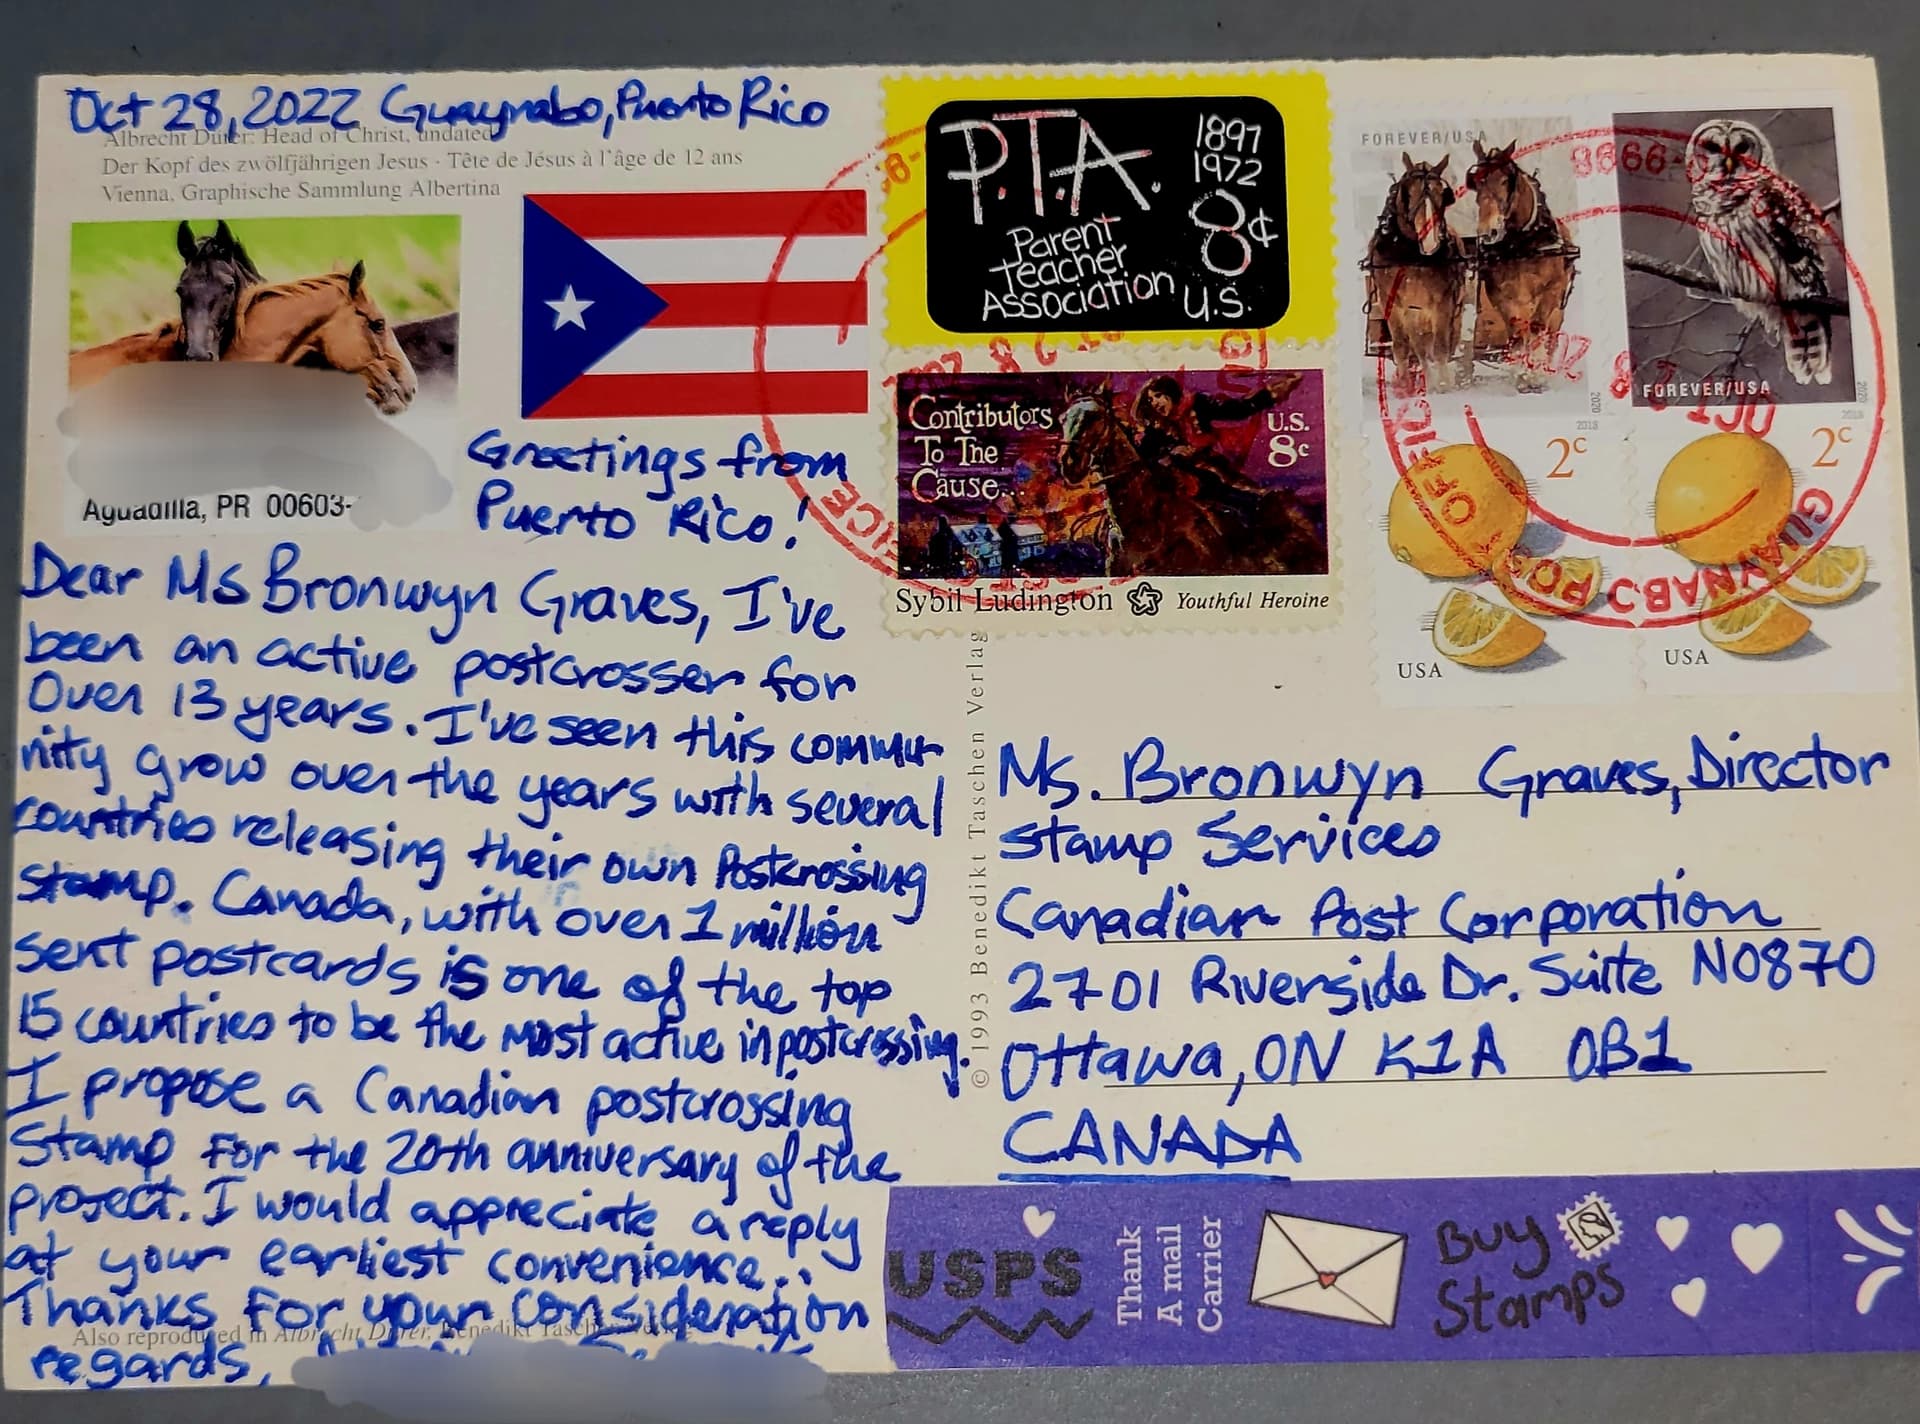 Oct 28, 2022 Guaynabo, Puerto Rico
Albrecht Dürer: Head of Christ, undated
Der Kopf des zwölfjährigen Jesus · Tête de Jésus à l'âge de 12 ans
Vienna, Graphische Sammlung Albertina
Aguadilla, PR 00603-
Greetings from
Puerto Rico!
Dear Ms Bronwyn Graves, I've
been an active postcrosser for
Over 13 years. I've seen this commu-
nity grow over the years with several
countries releasing their own Postcrossing
stamp. Canada, with over 1 million
sent postcards is one of the top
15 countries to be the most active in postcrossing.
I propose a Canadian postcrossing
Stamp for the 20th anniversary of the
project. I would appreciate a reply
at your earliest convenience..
Thanks for your consideration
Also reproduced in Albrecht Dürer, Benedikt Taschen
regards,
P.T.A.
1897
1972
8¢
Parent
Teacher
Association
U.S.
Contributors
To The
Cause...
U.S.
8c
Sybil Ludington
Youthful Heroine
FOREVER/USA
2020
FOREVER/USA
2018
2c
USA
2018
2c
USA
2020
OCT 28 2022
GUAYNABO POST OFFICE
OCT 28 2022
OFFICE
© 1993 Benedikt Taschen Verlag
Ms. Bronwyn Graves, Director
Stamp Services
Canadian Post Corporation
2701 Riverside Dr. Suite N0870
Ottawa, ON K1A 0B1
CANADA
USPS
Thank
A mail
Carrier
Buy
Stamps